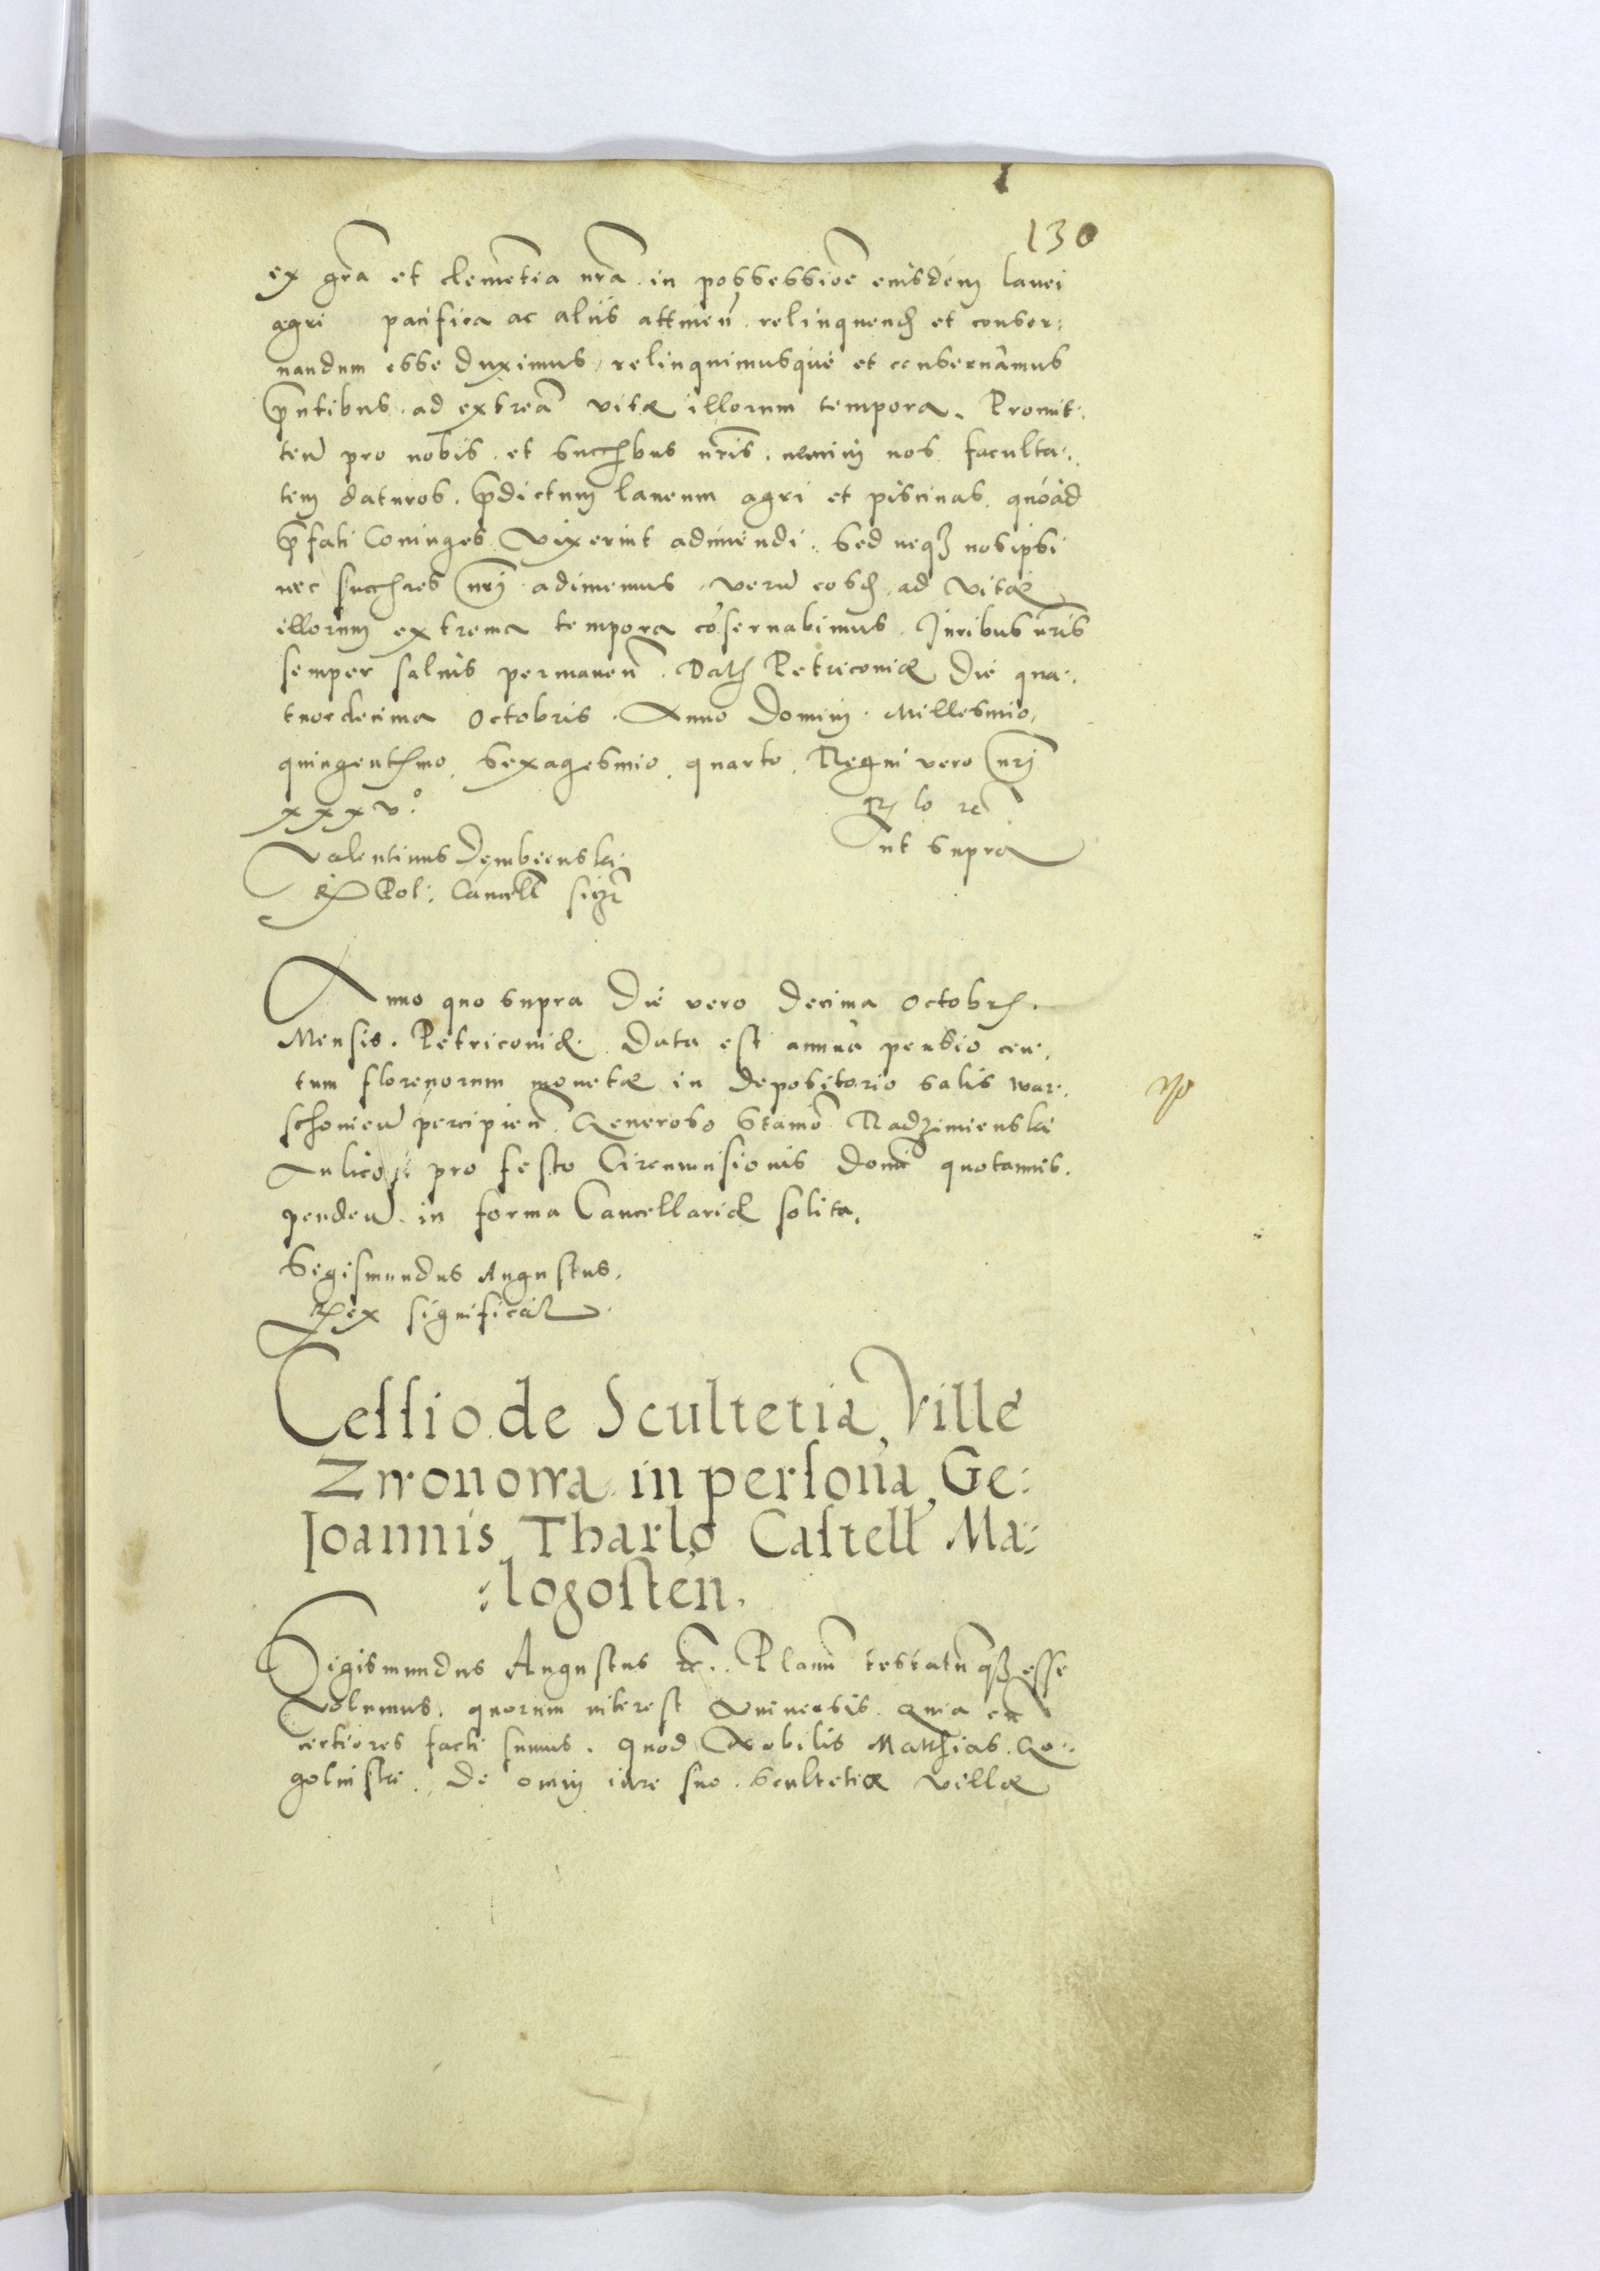 130
ex gra et clemetia nra in possessioe eiusdem lanei
agri pacifica ac aliis attinen relinquend et conser:
uandum esse duximus, relinquimusque et conseruamus
pntibus ad extrea vitæ illorum tempora. Promit:
ten pro nobis et succribus nris. nemini nos faculta:
tem daturos, pdictum laneum agri et piscinas, quoad
pfati Coniuges vixerint adimendi. Sed neqz nosipsi
nec succres nri adimemus, verum eosd ad vitæ
illorum extrema tempora coseruabimus. Iuribus nris
semper saluis permanen. Dat Petricouiæ Die qua:
tuordecima Octobris. Anno Domini Millesimo,
quingentmo, Sexagesimo, quarto, Regni vero nri
xxxv.º R lo re
Valentinus Dembienski ut supra
R Pol: Cancell
Anno quo supra Die vero decima Octobr.
Mensis. Petricouiæ. Data est annua pensio cen:
tum florenorum monetæ in depositorio salis war:
schouien percipien. Generoso Stanio Radzimienski
Aulico pro festo Circumcisionis Domi quotannis.
penden. in forma Cancellariæ solita.
Sigismundus Augustus.
Rex significat
Cessio de Scultetia Ville
Zwonowa in persona Ge:
Joannis Tharlo Castell Ma:
:logosten.
Sigismundus Augustus etc. Planu testatuqz esse
Volumus, quorum interest Vniuersis. Quia cu
certiores facti sumus. Quod Nobilis Matthias Go:
golinski. De omni iure suo Scultetiæ villæ